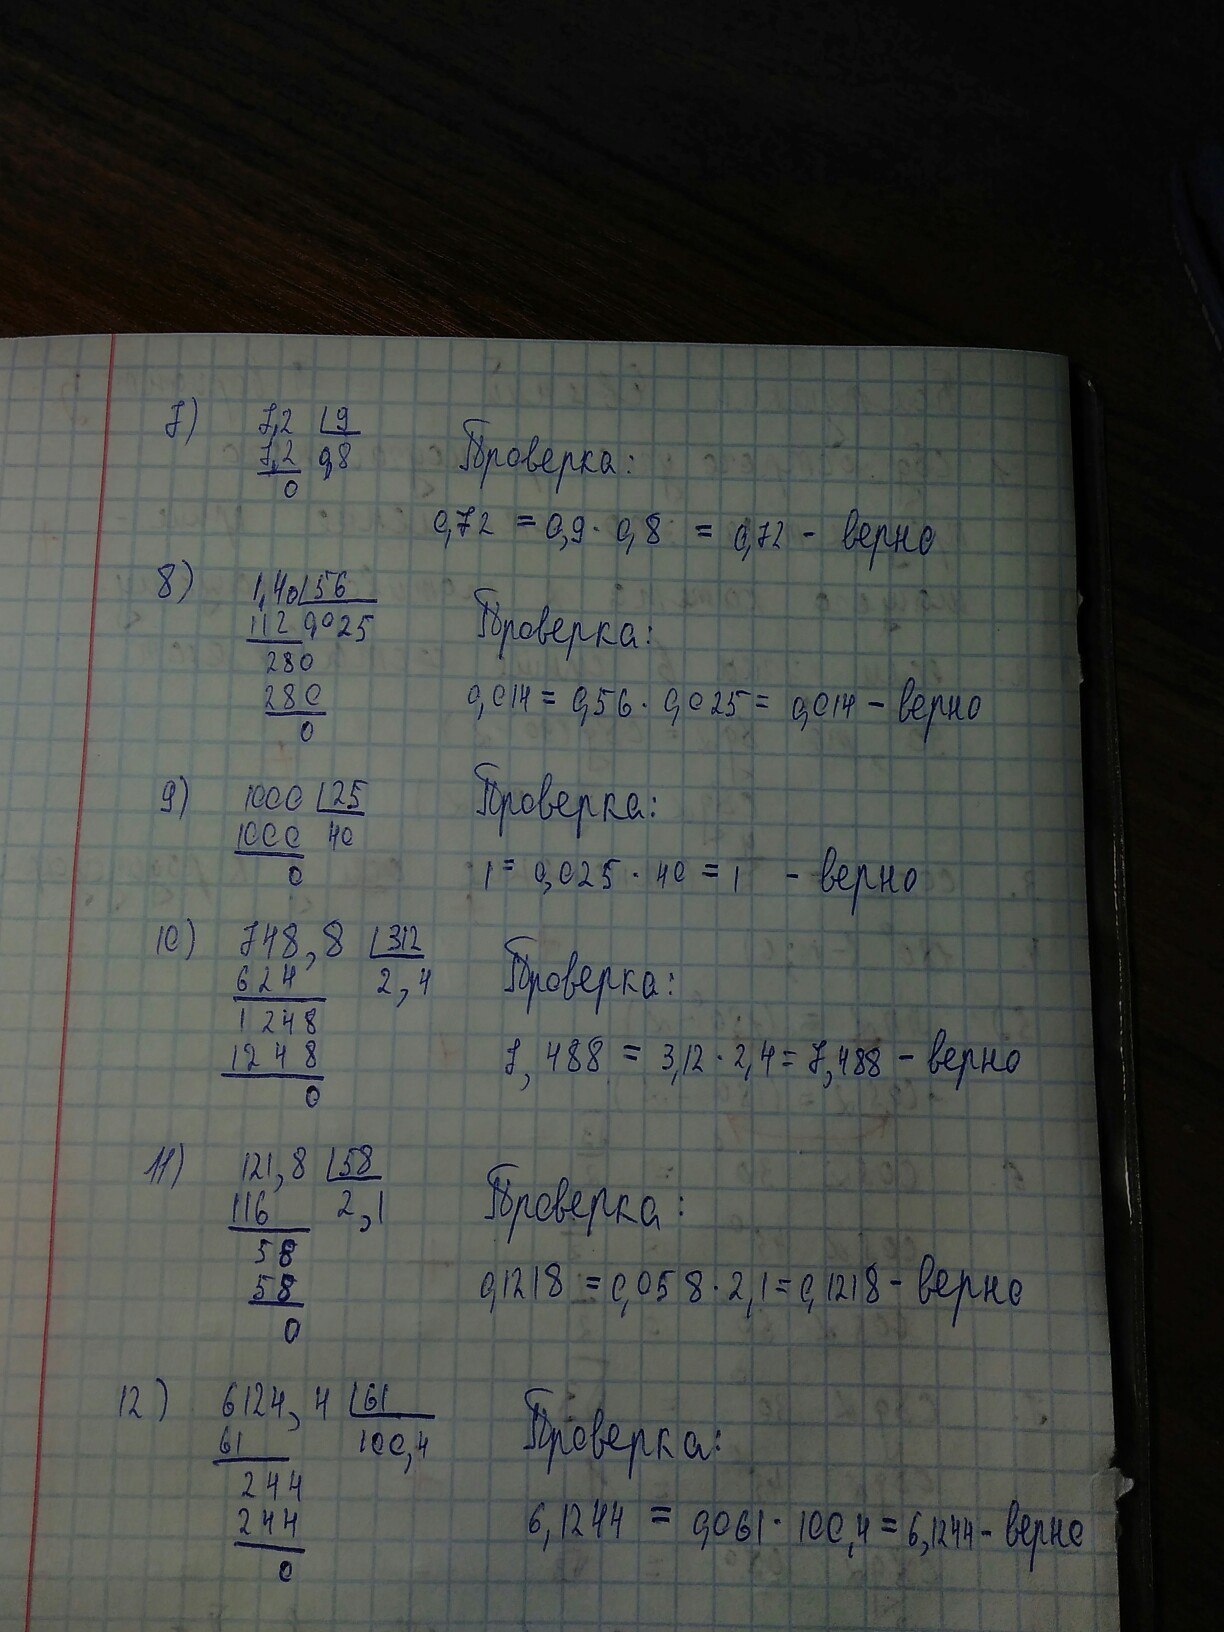 7) 7,2 | 9
7,2 0,8 Проверка:
0
0,72 = 0,9 · 0,8 = 0,72 - верно
8) 1,40 | 56
112 0,025 Проверка:
280
280 0,014 = 0,56 · 0,025 = 0,014 - верно
0
9) 1000 | 25 Проверка:
1000 40
0 1 = 0,025 · 40 = 1 - верно
10) 748,8 | 312
624 2,4 Проверка:
1248
1248 7,488 = 3,12 · 2,4 = 7,488 - верно
0
11) 121,8 | 58
116 2,1 Проверка:
58
58 0,1218 = 0,058 · 2,1 = 0,1218 - верно
0
12) 6124,4 | 61
61 100,4 Проверка:
244
244 6,1244 = 0,061 · 100,4 = 6,1244 - верно
0